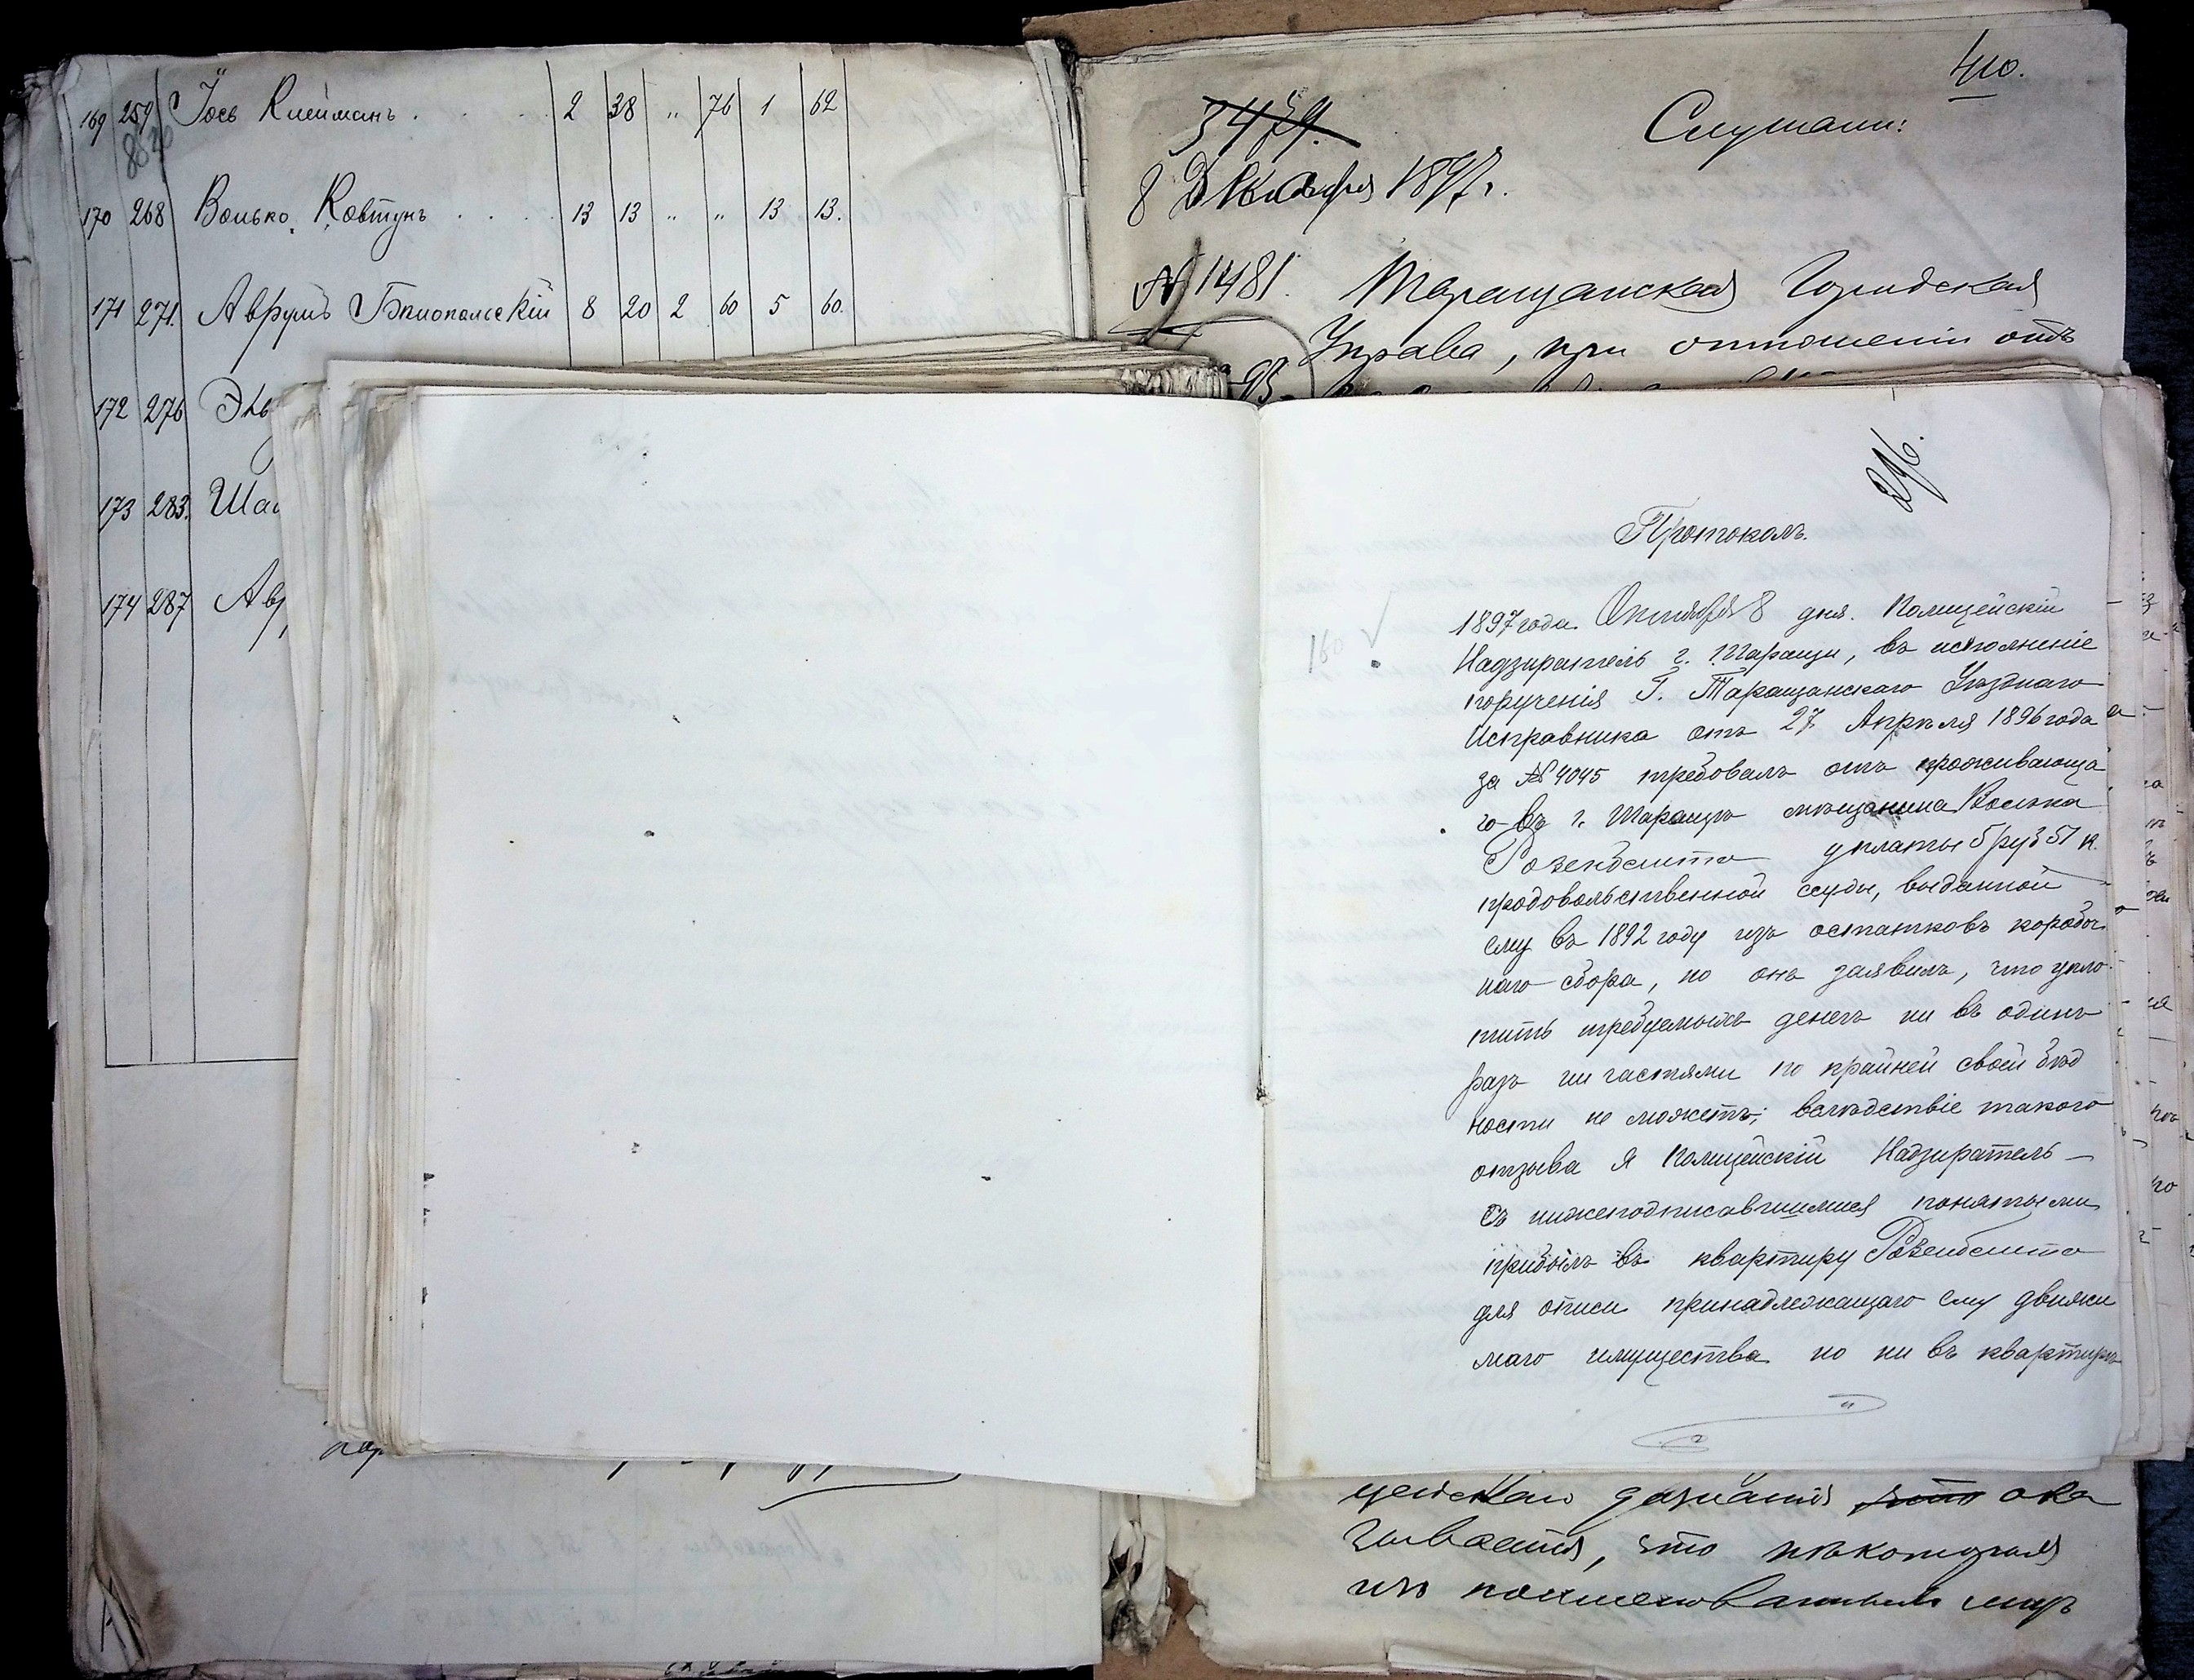 169 259 Іось Клейманъ . . . . 2 38 „ 76 1 62
8820
170 268 Волько Ковтунъ . . . . 13 13 „ „ 13 13.
171 271. Аврумъ Бѣлопольскій 8 20 2 60 5 60.
172 276
173 283.
174 287
410.
3479.
Слушали:
8 Декабря 1897 г.
№ 1481. Таращанская Городская
Управа, при отношеніи отъ
216.
Протоколъ.
160
1897 года Октября 8 дня. Полицейскій
Надзиратель г. Таращи, въ исполненіе
порученія Г. Таращанскаго Уѣзднаго
Исправника отъ 27 Апрѣля 1896 года
за № 4045 требовалъ отъ проживающа
го въ г. Таращѣ мѣщанина Волька
Розенблита уплаты 5 руб 51 к.
продовольственной ссуды, выданной
ему въ 1892 году изъ остатковъ коробоч
наго сбора, но онъ заявилъ, что упла
тить требуемыхъ денегъ ни въ одинъ
разъ ни частями по крайней своей бѣд
ности не можетъ; вслѣдствіе такого
отзыва я Полицейскій Надзиратель —
съ нижеподписавшимися понятыми
прибылъ въ квартиру Розенблита
для описи принадлежащаго ему движи
маго имущества но ни въ квартирѣ
цейскаго дознанія что ока
зывается, что нѣкоторыя
изъ поименованныхъ